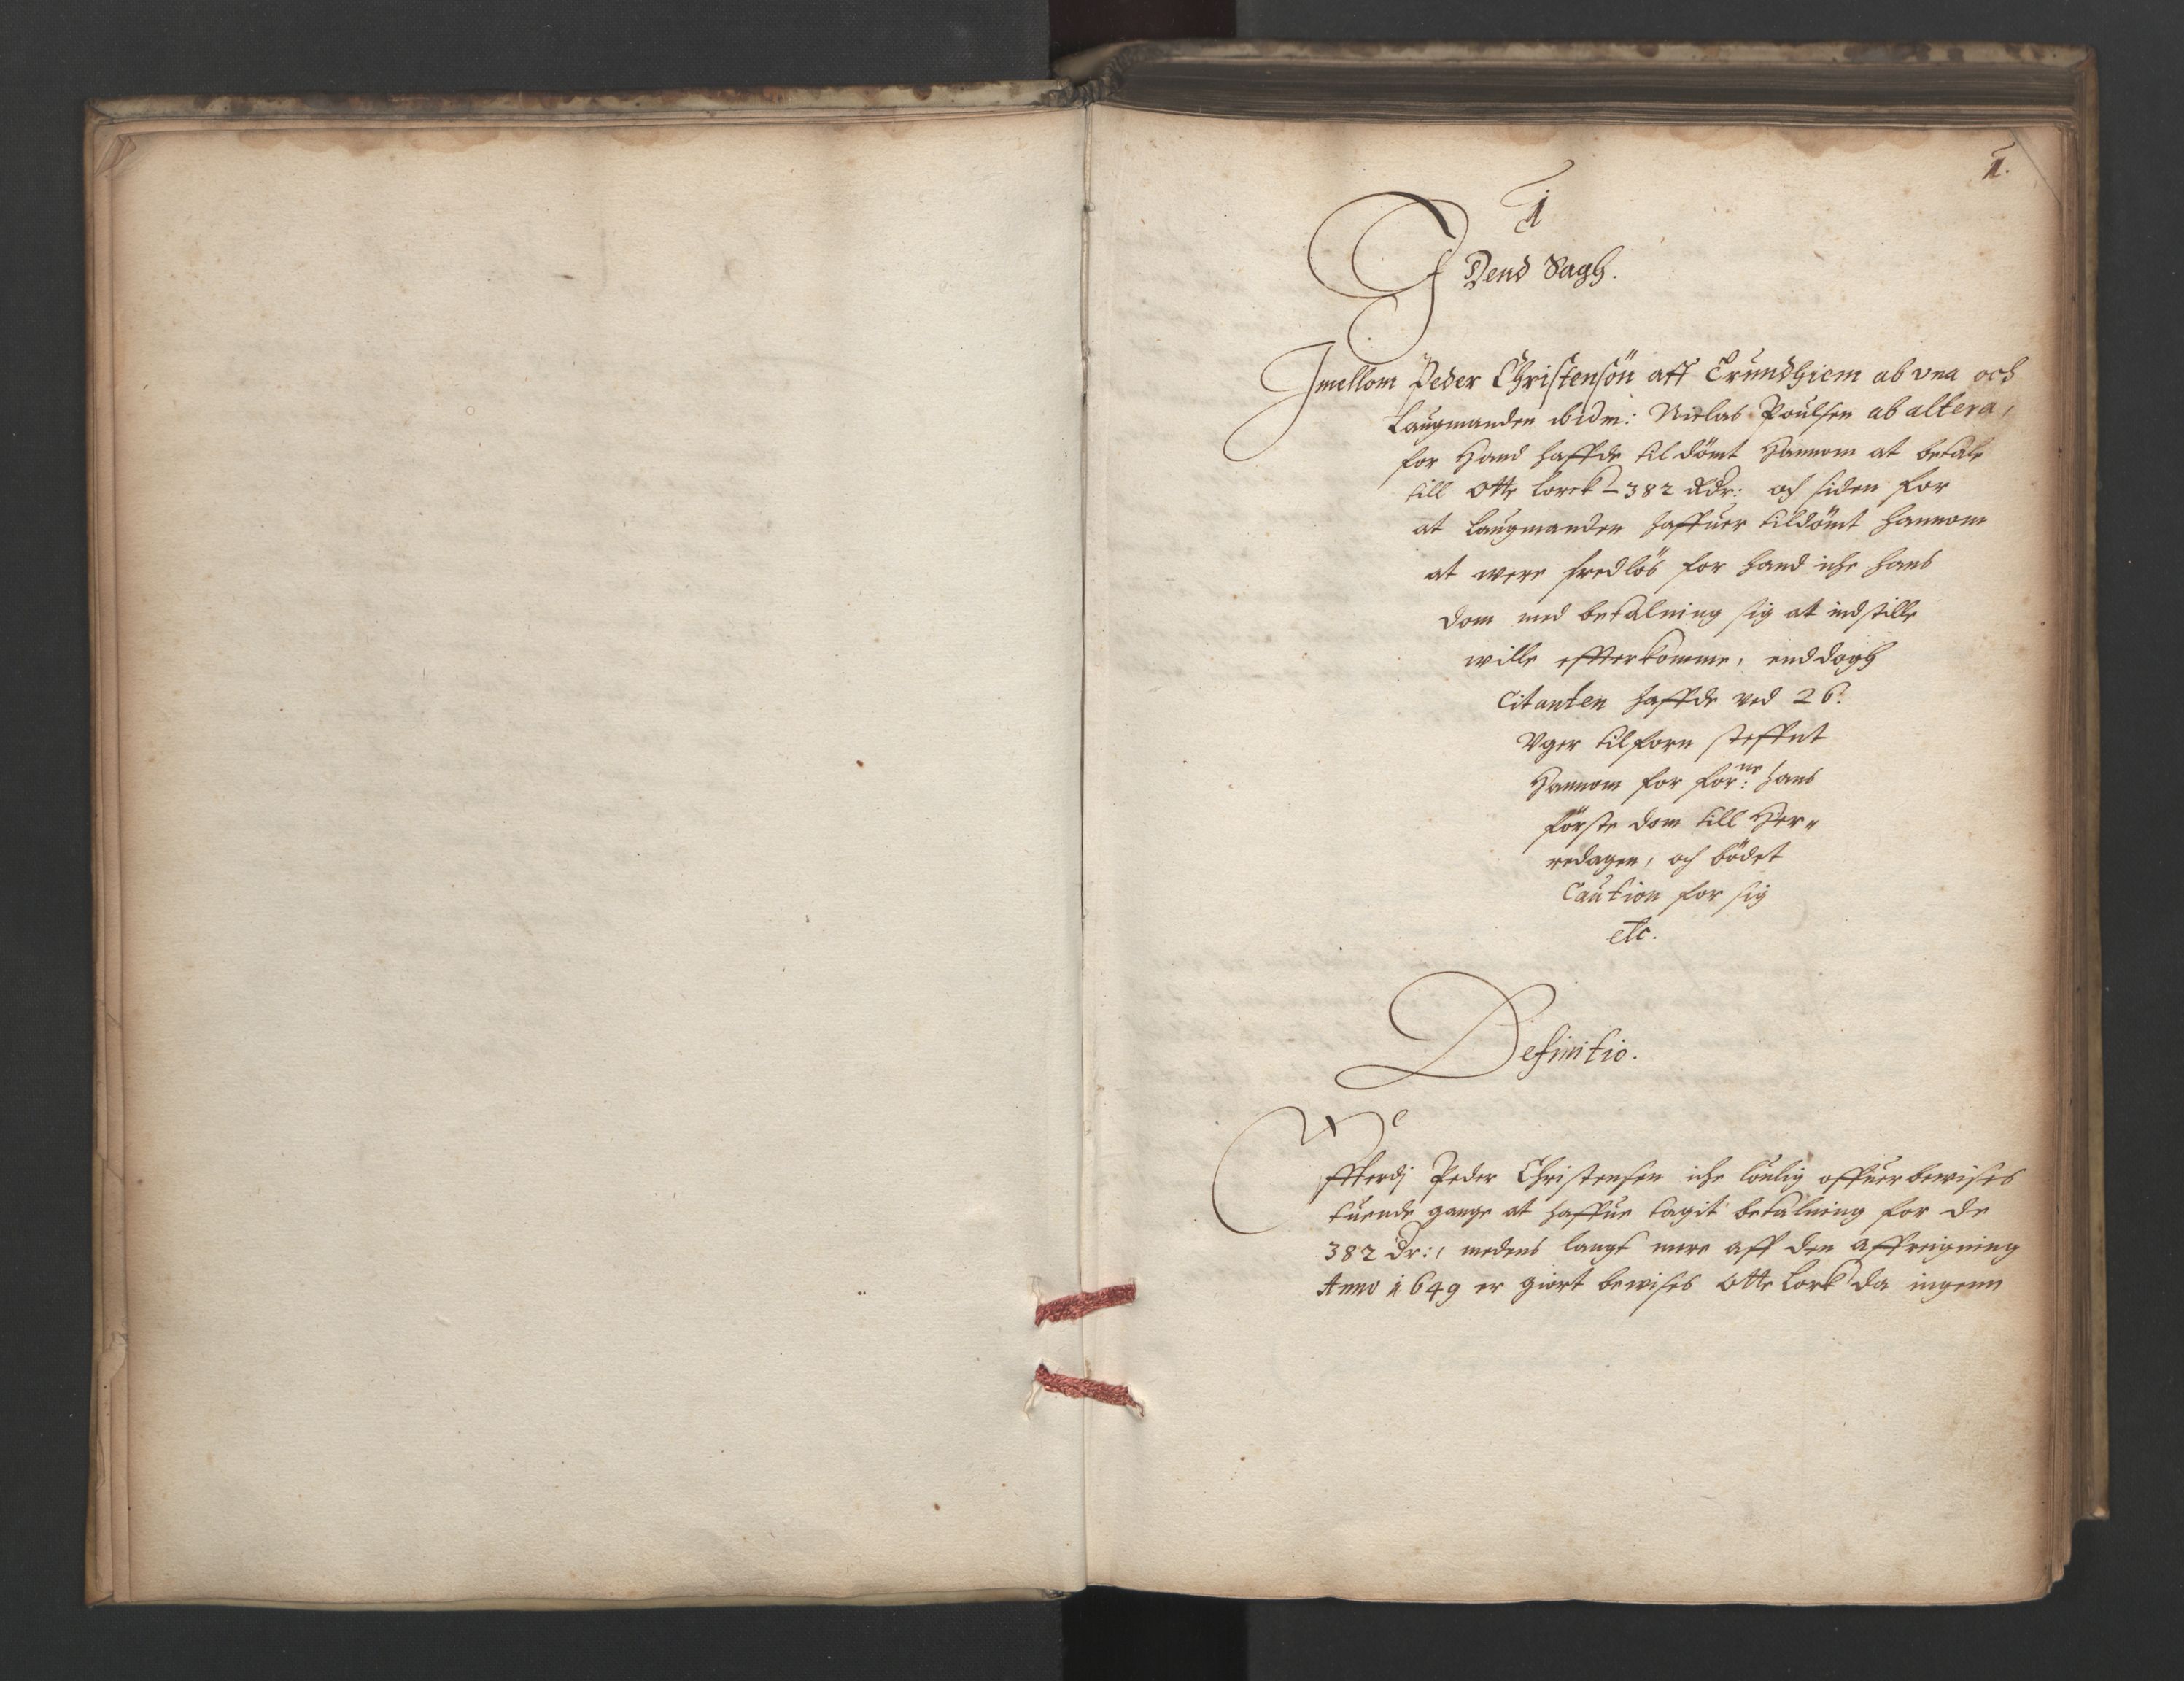 1.
1
J Dend Sagh.
Jmellom Peder Christensön aff Trundhiem ab vna och
Laugmanden ibidm: Niclas Poulsen ab altera,
for Hand haffde til dömt Hannom at betale
till Otte Lorck – 382 Rdr: och siden for
at Laugmanden haffuer tildömt hannom
at were fredlös for hand iche hans
dom med betalning sig at indstille
wille effterkomme, enddogh
Citanten haffde ved 26.
Vger tilforn steffnt
Hannom for forne: hans
förste dom till Her„
redagen, och bödet
Caution for sig
etc.
Definitio.
Effterdj Peder Christensen iche loulig offuerbewises
tuende gange at haffue tagit betalning for de
382 Dr:, medens langt mere aff den affreigning
Anno 1649 er giort bewises Otte Lork da ingenn